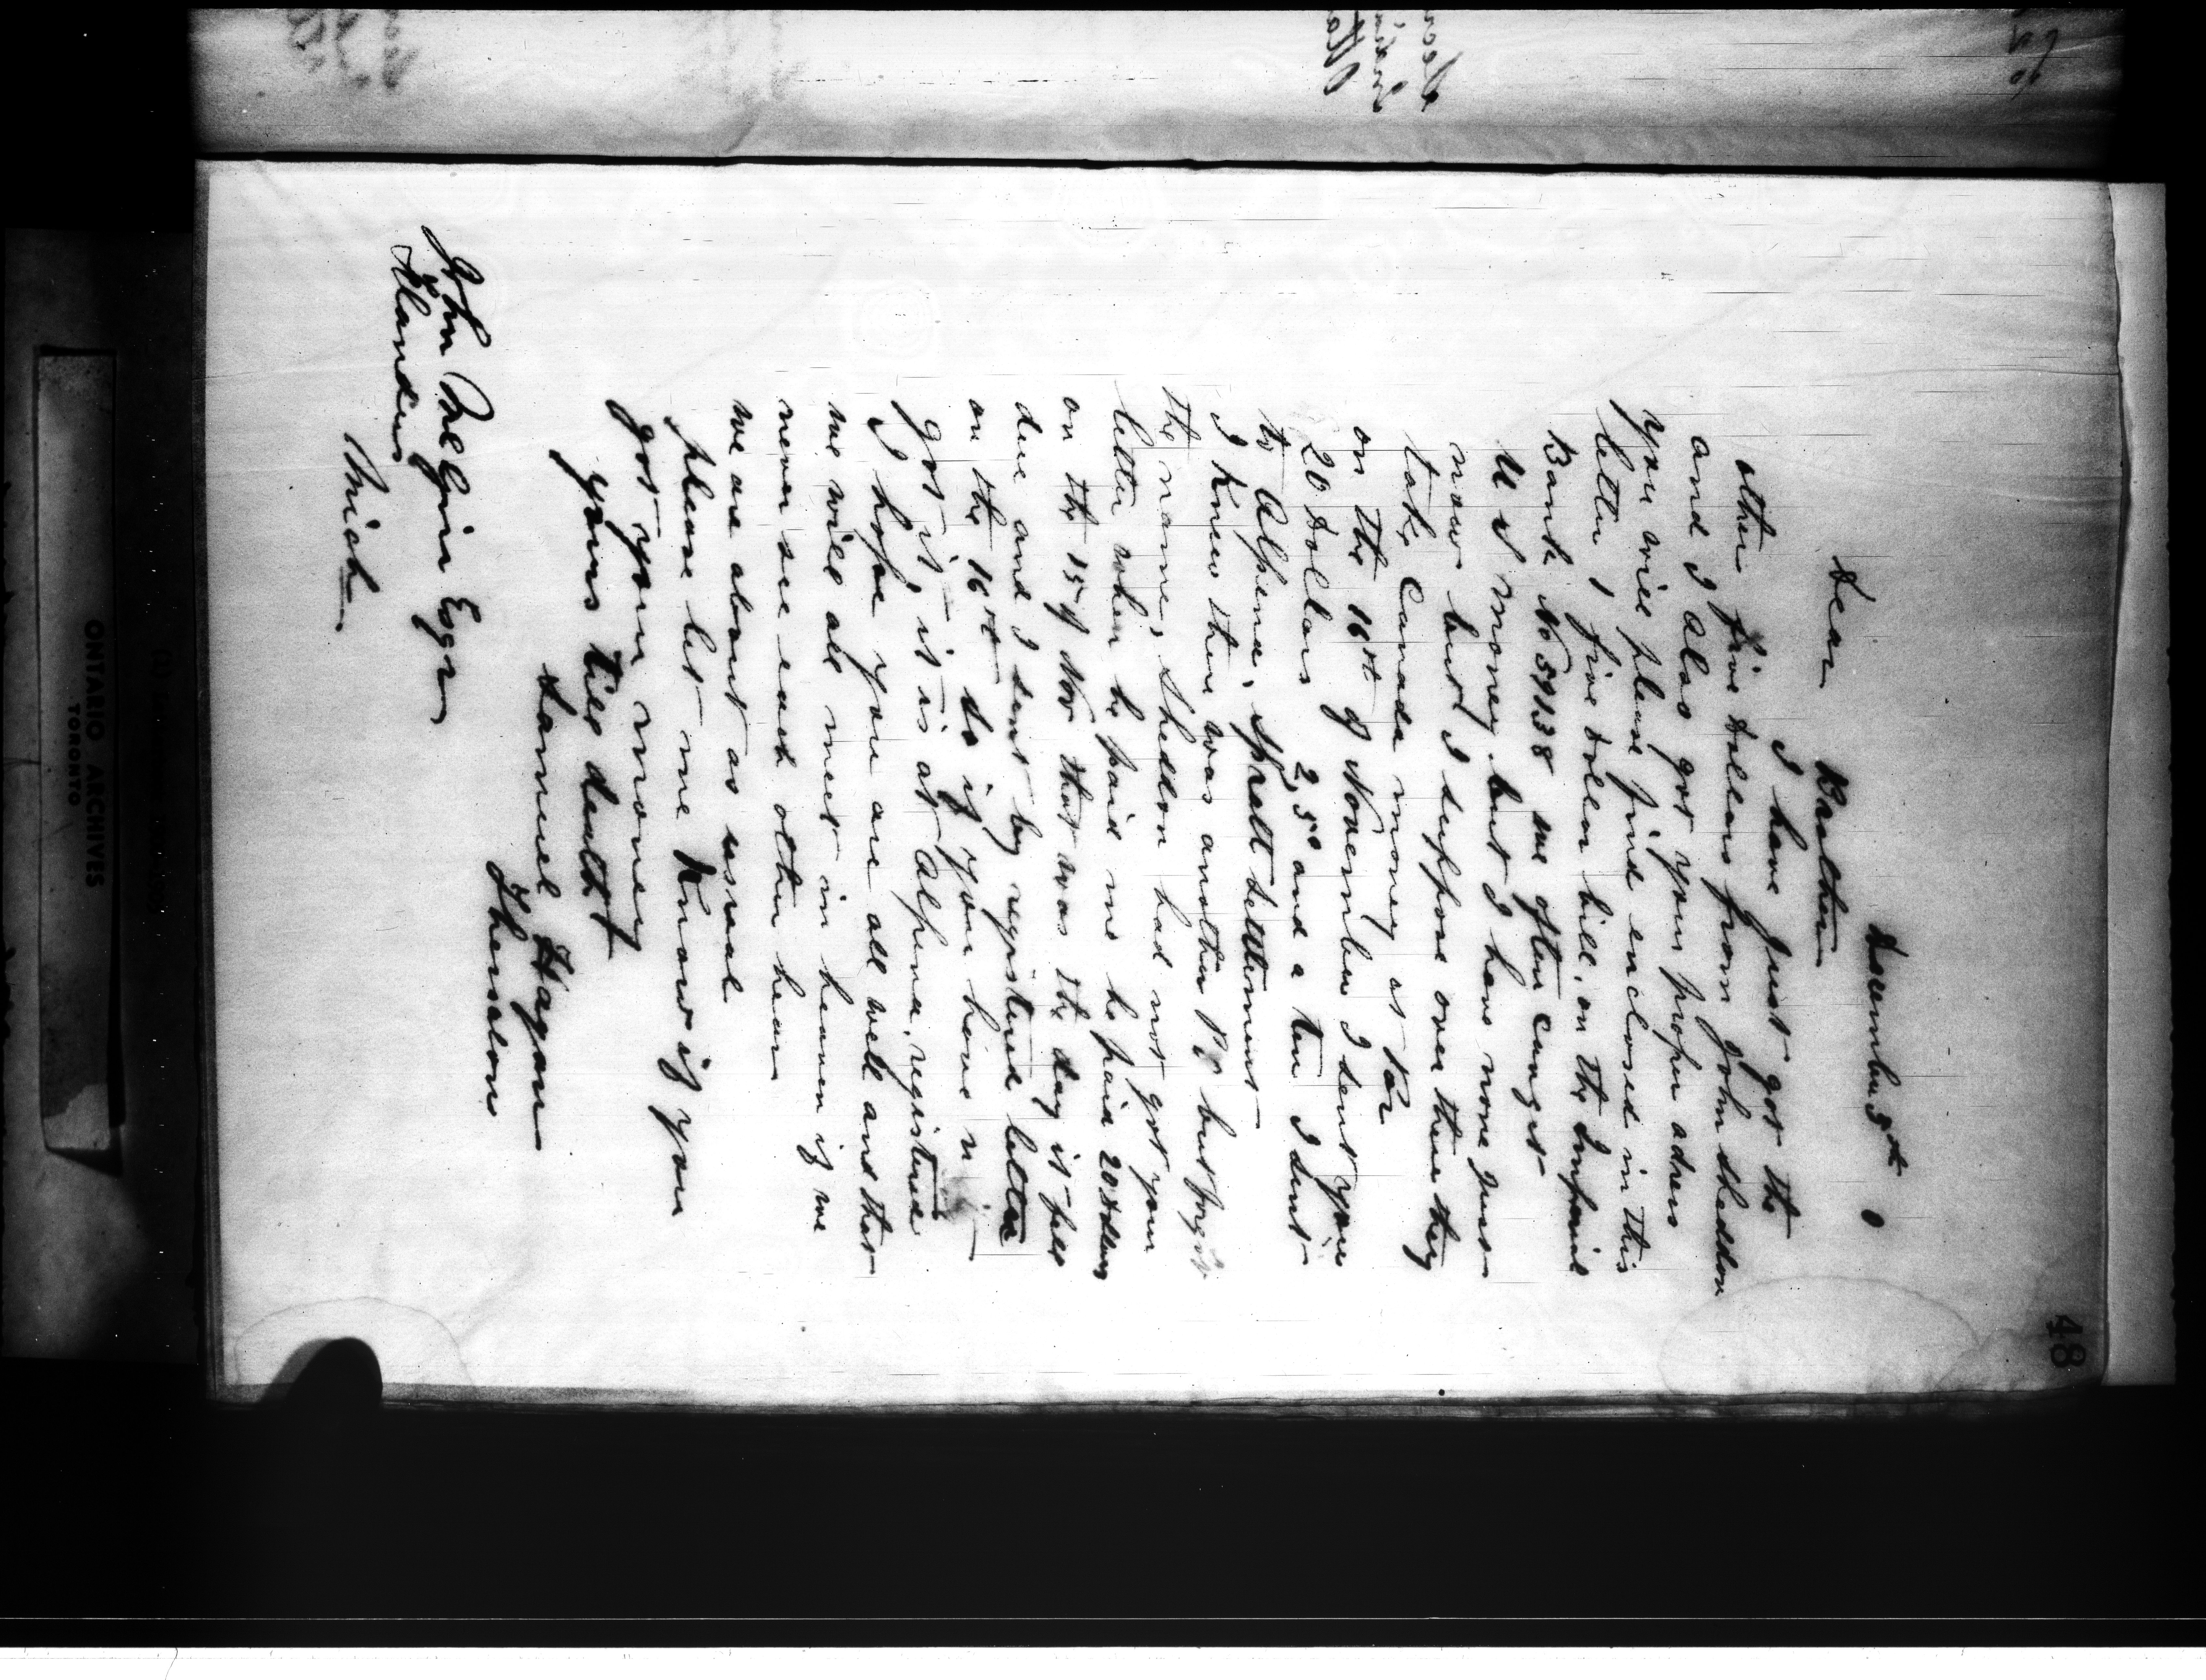 48
December 5th
Dear Brother
I have just got the
other five dollars from John Sheddon
and I also got your proper adress
you will please find enclosed in this
letter 1 five dollar bill, on the Imperial
Bank No 59138 we often can get
U S money but I have none just
now but I suppose over there they
take Canada money at Par
on the 16th of November I sent you
20 dollars 2, 5s and a ten I sent
to Alpena, Spratt settlement
I knew there was another PO but forgot
the name, Sheddon had not got your
letter when he paid me he paid 20 dollars
on the 15 of Nov that was the day it fell
due and I sent by registered letter
on the 16th so if you have n
got it, it is at Alpena, registered
I hope you are all well and that
we will all meet in heaven if we
never see each other hear
we are about as usual
please let me Know if you
got your money
yours till death
Samuel Hagan
Thessalon
John McGirr Esqr
Flanders
Mich
ONTARIO ARCHIVES
TORONTO